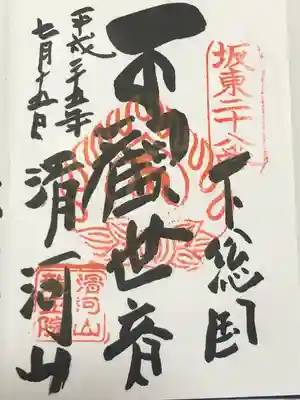 坂東二十八番
下総国
觀世音
滑河山
滑河山
龍正院
平成二十五年
七月十五日